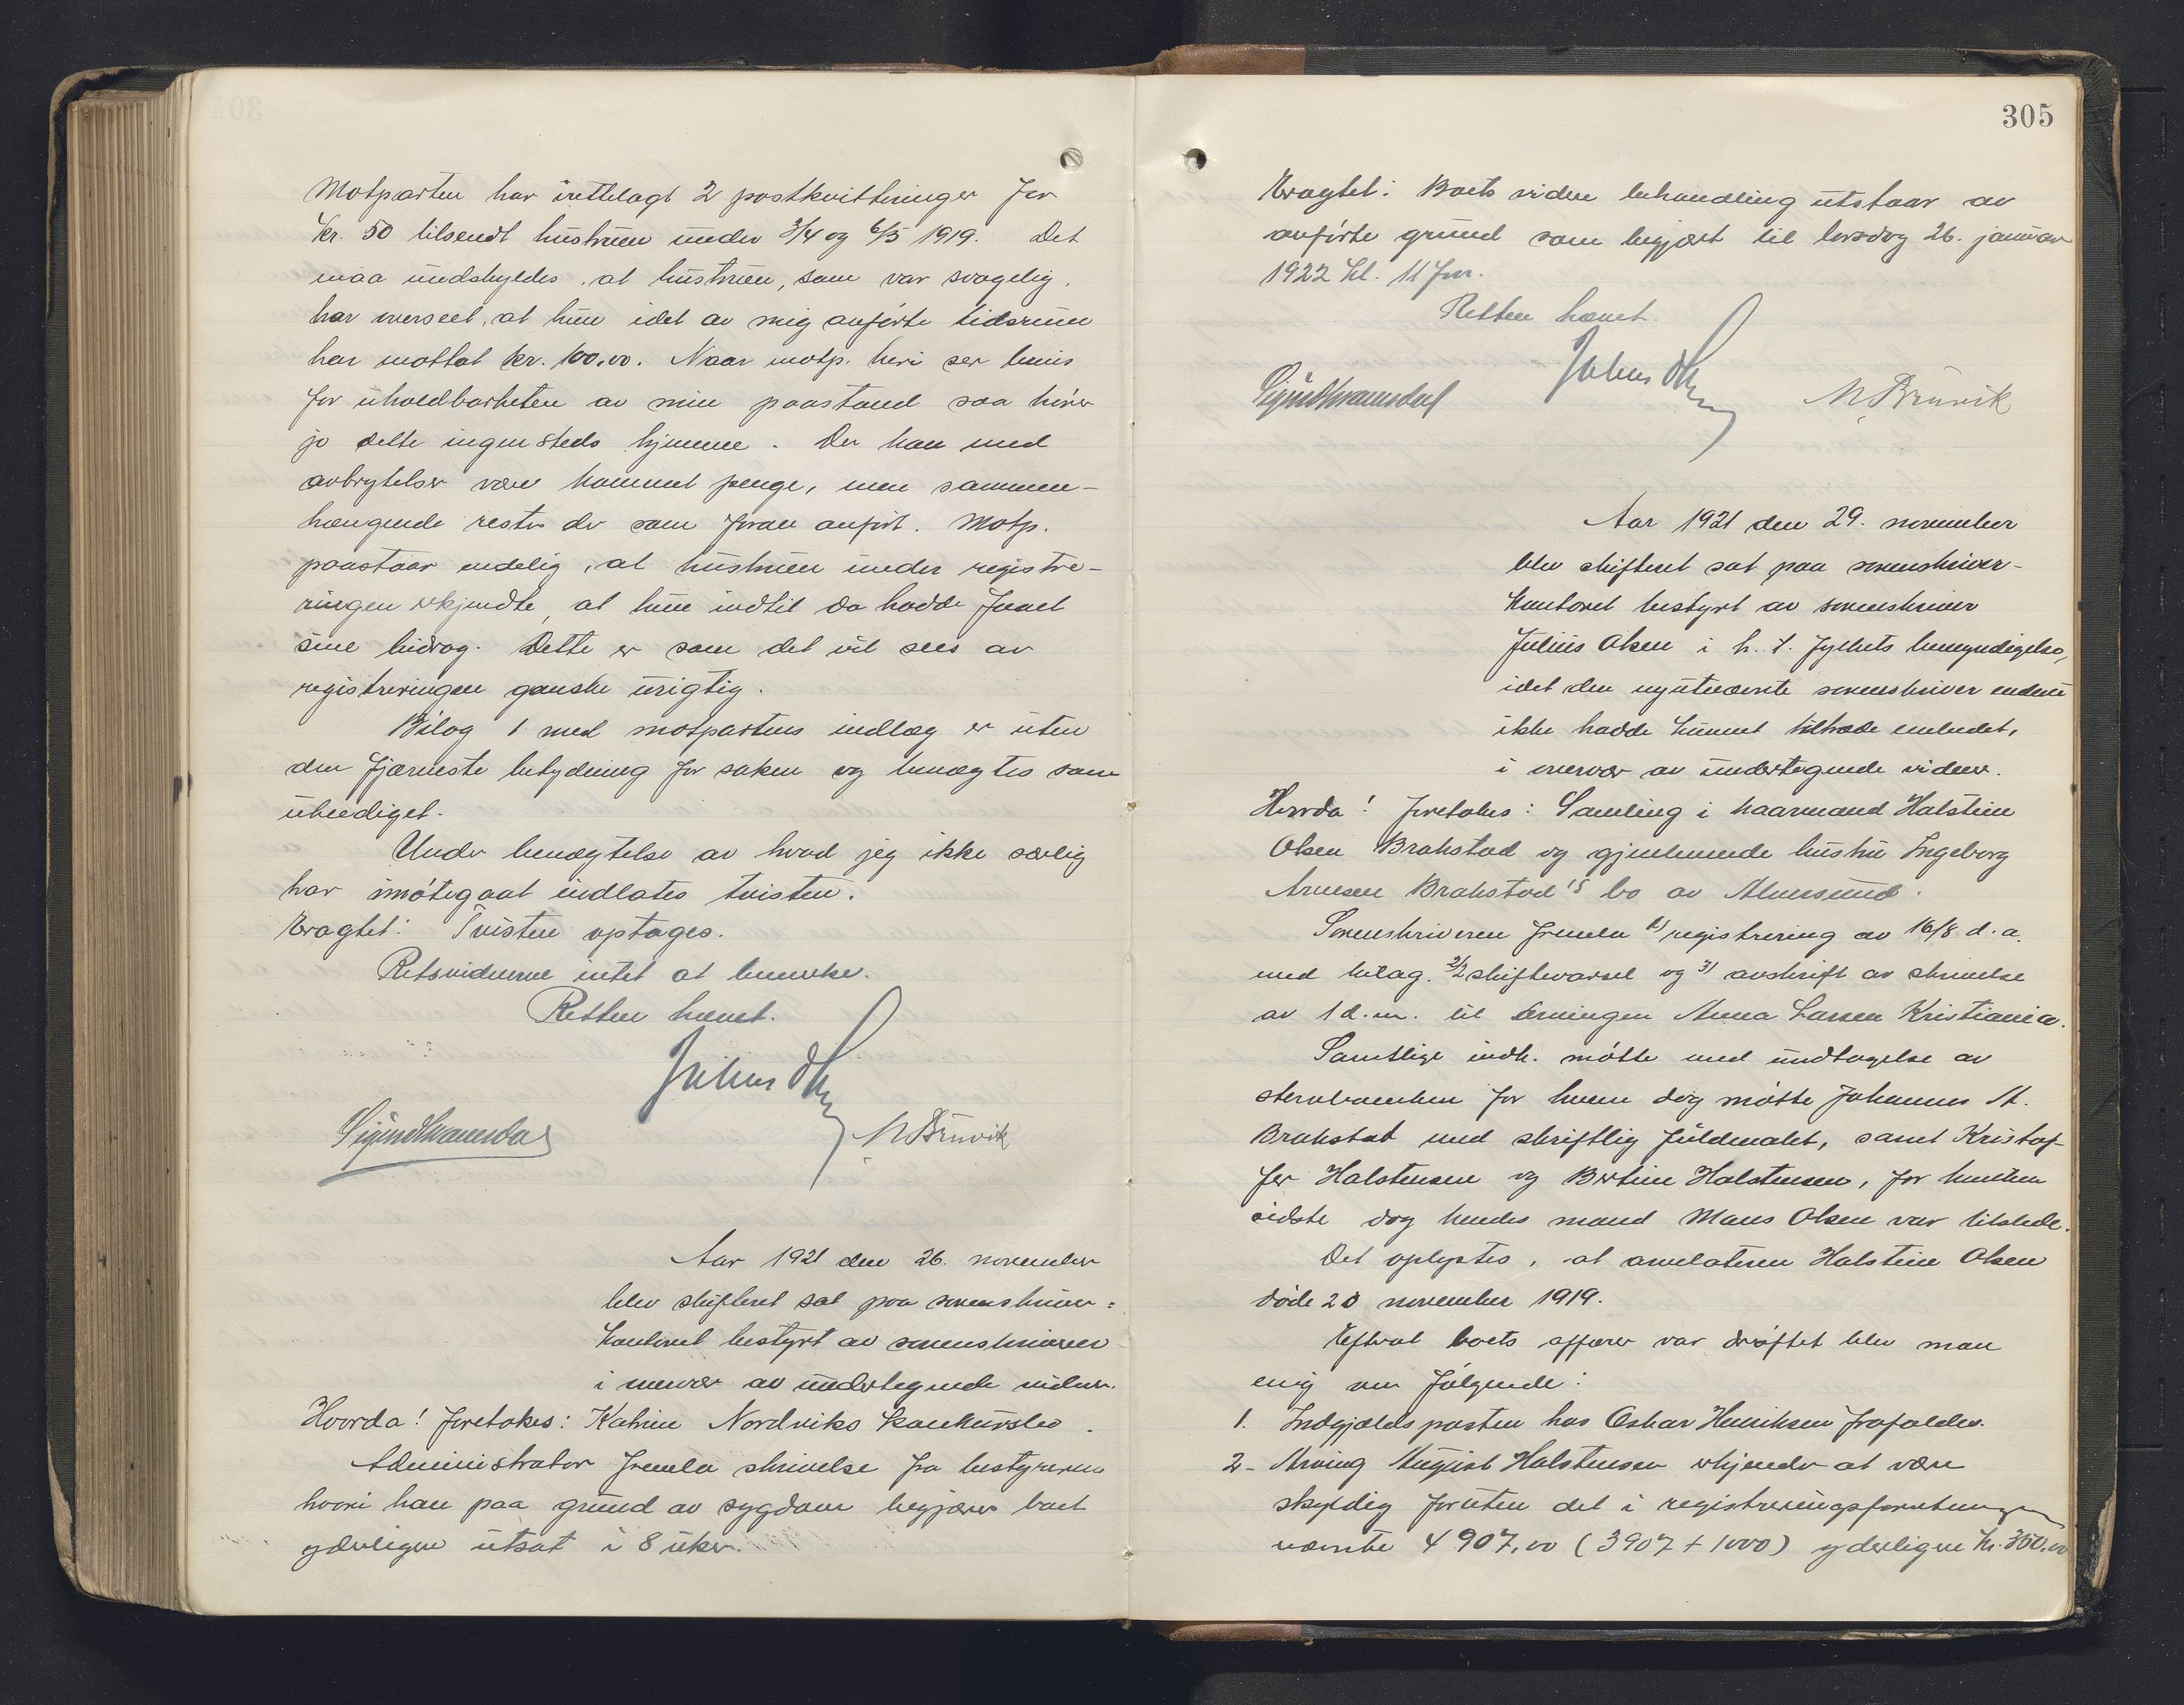 Motparten har irettelagt 2 postkvitteringer for
kr. 50 tilsendt hustruen under 3/4 og 6/5 1919. Det
maa undskyldes, at hustruen, som var svagelig,
har overseet, at hun i det av mig anførte tidsrum
har mottat kr. 100,00. Naar motp. heri ser bevis
for uholdbarheten av min paastand saa hører
jo dette ingensteds hjemme. Der kan med
avbrytelser være kommet penge, men sammen-
hængende rester der som foran anført. Motp.
paastaar endelig, at hustruen under registre-
ringen erkjendte, at hun indtil da hadde faaet
sine bidrag. Dette er som det vil sees av
registreringen ganske urigtig.
Bilag 1 med motpartens indlæg er uten
den fjærneste betydning for saken og benægtes som
ubeediget.
Under benægtelse av hvad jeg ikke særlig
har imøtegaat indlates tvisten.
Eragtet: Tvisten optages.
Retsvidnerne intet at bemerke.
Retten hævet.
Julius Olsen
Sigurd Kvamsdal M Bruvik
Aar 1921 den 26. november
blev skifteret sat paa sorenskriver-
kontoret bestyrt av sorenskriveren
i overvær av undertegnede vidner.
Hvorda! foretokes: Katrine Nordviks konkursbo.
Administrator fremla skrivelse fra bestyreren
hvori han paa grund av sygdom begjærer boet
yderligere utsat i 8 uker.
305
Eragtet: Boets videre behandling utstaar av
anførte grund som begjært til torsdag 26. januar
1922 kl. 11 fm.
Retten hævet.
Julius Olsen
Sigurd Kvamsdal M Bruvik
Aar 1921 den 29. november
blev skifteret sat paa sorenskriver-
kontoret bestyrt av sorenskriver
Julius Olsen i h. t. fylkets bemyndigelse,
idet den nyutnævnte sorenskriver endnu
ikke hadde kunnet tiltræde embedet,
i overvær av undertegnede vidner.
Hvorda! foretokes: Samling i haarmand Halstein
Olsen Brakstad og gjenlevende hustru Ingeborg
Arnesen Brakstad's bo av Alversund.
Sorenskriveren fremla 1) registrering av 16/8 d. a.
med bilag. 2) 2 skiftevarsel og 3) avskrift av skrivelse
av 1 d. m. til arvingen Anna Larsen Kristiania.
Samtlige indk. møtte med undtagelse av
sterboenken for hvem dog møtte Johannes A.
Brakstat med skriftlig fuldmakt, samt Kristof-
fer Halstensen og Bertine Halstensen, for hvilken
sidste dog hendes mand Mans Olsen var tilstede.
Det oplystes, at arvelateren Halstein Olsen
døde 20 november 1919.
Efterat boets affærer var drøftet blev man
enig om følgende:
1. Indgjældsposten hos Oskar Henriksen frafaldes.
2. Arving August Halstensen erkjender at være
skyldig foruten det i registreringsforretningen
nævnte 4907,00 (3907 + 1000) yderligere kr. 350,00